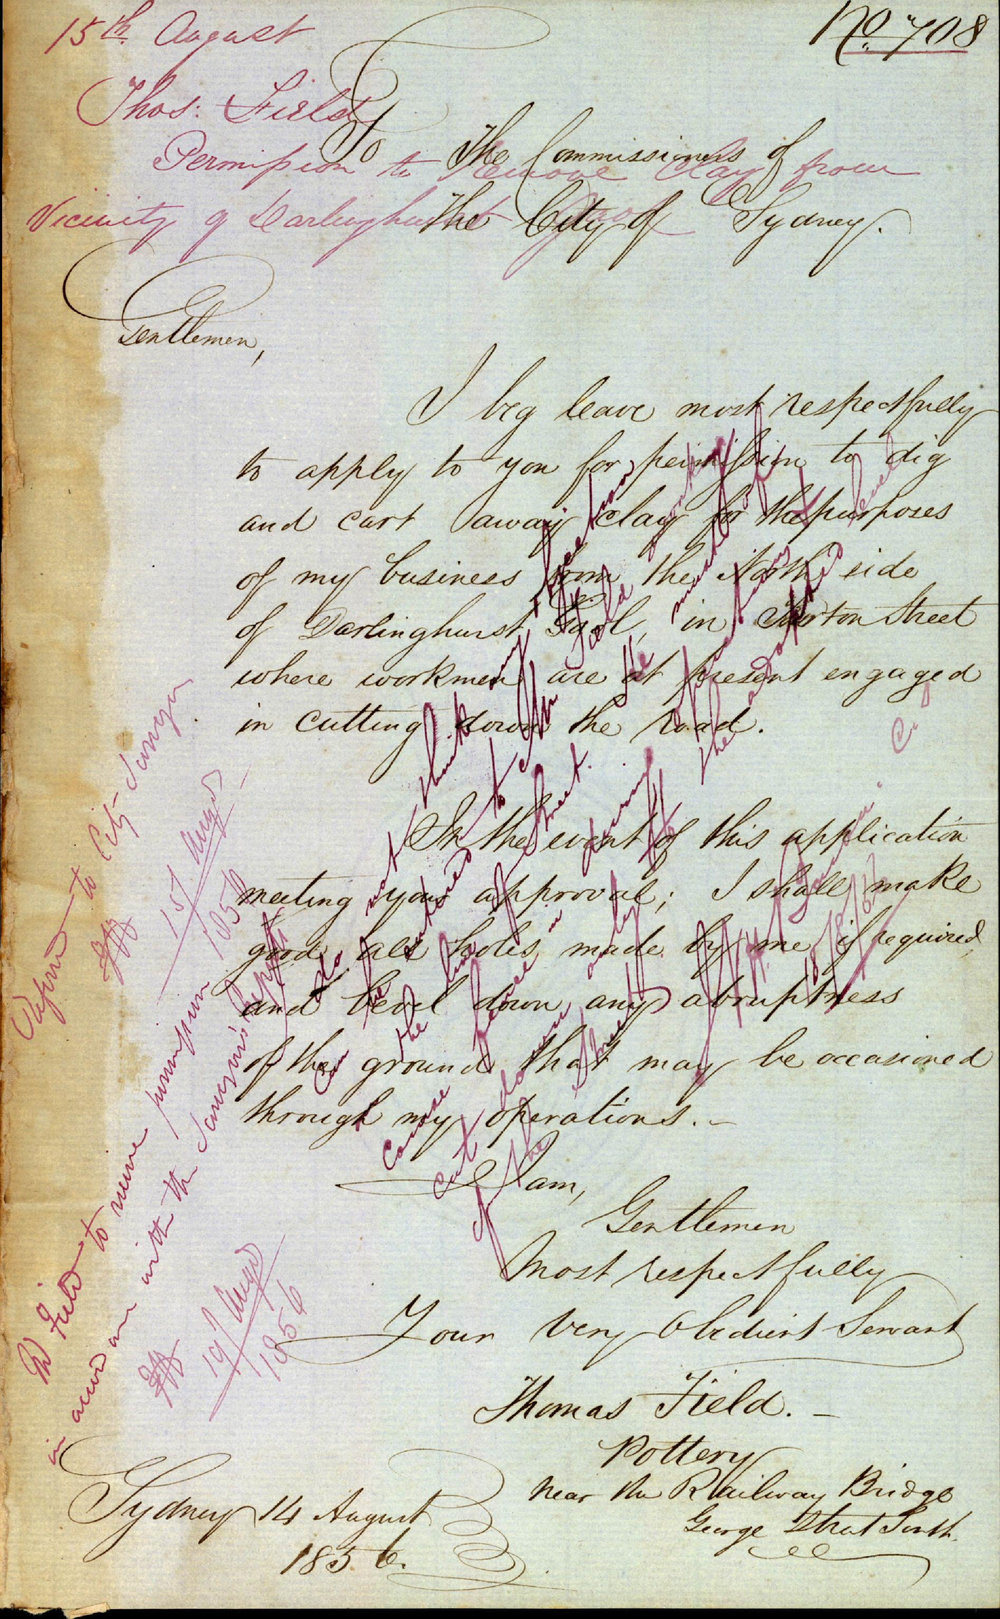 No. 708
15th August
Thos: Field
Permission to Remove Clay from
Vicinity of Darlinghurst Gaol
To The Commissioners of
The City of Sydney.
Gentlemen,
I beg leave most respectfully
to apply to you for permission to dig
and cart away clay for the purposes
of my business from the North side
of Darlinghurst Gaol, in Burton Street
where workmen are at present engaged
in cutting down the road.
In the event of this application
meeting your approval; I shall make
good all holes made by me if required,
and bevel down any abruptness
of the ground that may be occasioned
through my operations. -
I am,
Gentlemen
Most respectfully
Your Very Obedient Servant
Thomas Field. -
Pottery
Near the Railway Bridge
George Street South
Sydney 14 August
1856.
Report to City Surveyor
15/ Augst
1856
I do not think any
can be entered to Mr Field
the line of Street.
cut down only
of the Street
Mr Field to receive permission
in accordance with the Surveyor's report
19/ Augst
1856